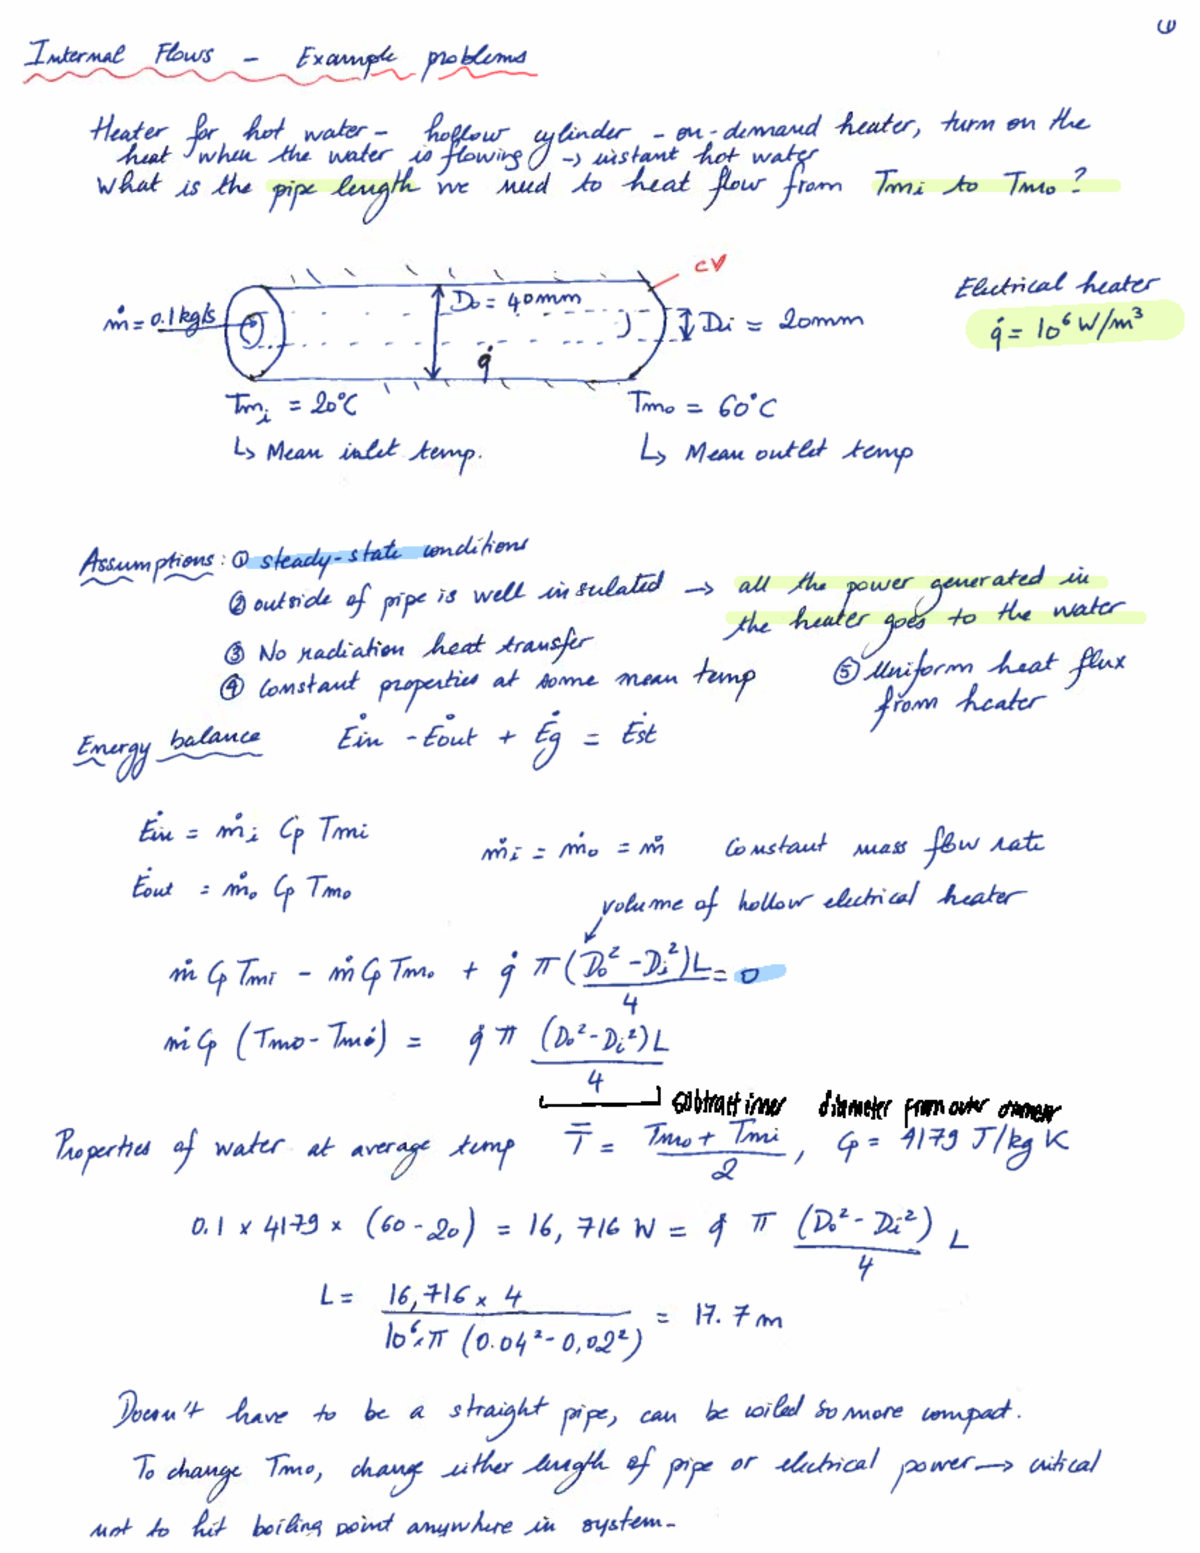 (1)
Internal Flows - Example problems
Heater for hot water - hollow cylinder - on-demand heater, turn on the
heat when the water is flowing -> instant hot water
What is the pipe length we need to heat flow from Tmi to Tmo?
CV
Electrical heater
ṁ = 0.1kg/s
Do = 40mm
Di = 20mm
q̇ = 10⁶ W/m³
q̇
Tmi = 20°C
Tmo = 60°C
↳ Mean inlet temp.
↳ Mean outlet temp
Assumptions: ① steady-state conditions
② outside of pipe is well insulated → all the power generated in
the heater goes to the water
③ No radiation heat transfer
④ Constant properties at some mean temp
⑤ Uniform heat flux
from heater
Energy balance Ėin - Ėout + Ėg = Ėst
Ėin = ṁi Cp Tmi
ṁi = ṁo = ṁ Constant mass flow rate
Ėout = ṁo Cp Tmo
volume of hollow electrical heater
ṁ Cp Tmi - ṁ Cp Tmo + q̇ π (Do² - Di²)L/4 = 0
ṁ Cp (Tmo - Tmi) = q̇ π (Do² - Di²)L/4
subtract inner diameter from outer diameter
Properties of water at average temp T̄ = (Tmo + Tmi)/2, Cp = 4179 J/kg K
0.1 × 4179 × (60 - 20) = 16,716 W = q̇ π (Do² - Di²)/4 L
L = 16,716 × 4 / 10⁶ × π (0.04² - 0.02²) = 17.7 m
Doesn't have to be a straight pipe, can be coiled so more compact.
To change Tmo, change either length of pipe or electrical power → critical
not to hit boiling point anywhere in system.